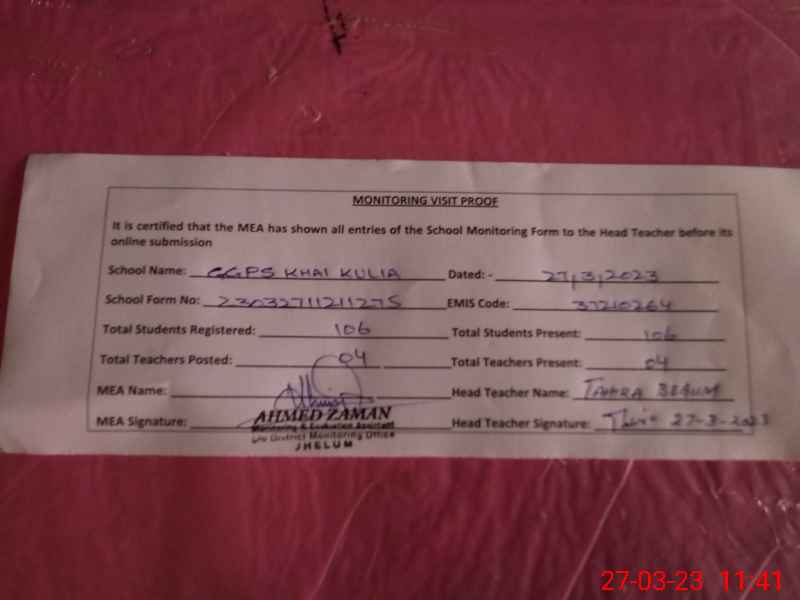 MONITORING VISIT PROOF
It is certified that the MEA has shown all entries of the School Monitoring Form to the Head Teacher before its
online submission
School Name: GGPS KHAI KULIA Dated: - 27,3,2023
School Form No: 23032711211275 EMIS Code: 37210264
Total Students Registered: 106 Total Students Present: 106
Total Teachers Posted: 04 Total Teachers Present: 04
MEA Name: Head Teacher Name: TAHIRA BEGUM
MEA Signature: AHMED ZAMAN Head Teacher Signature: 27-3-2023
Monitoring & Evaluation Assistant
O/o District Monitoring Office
JHELUM
27-03-23 11:41